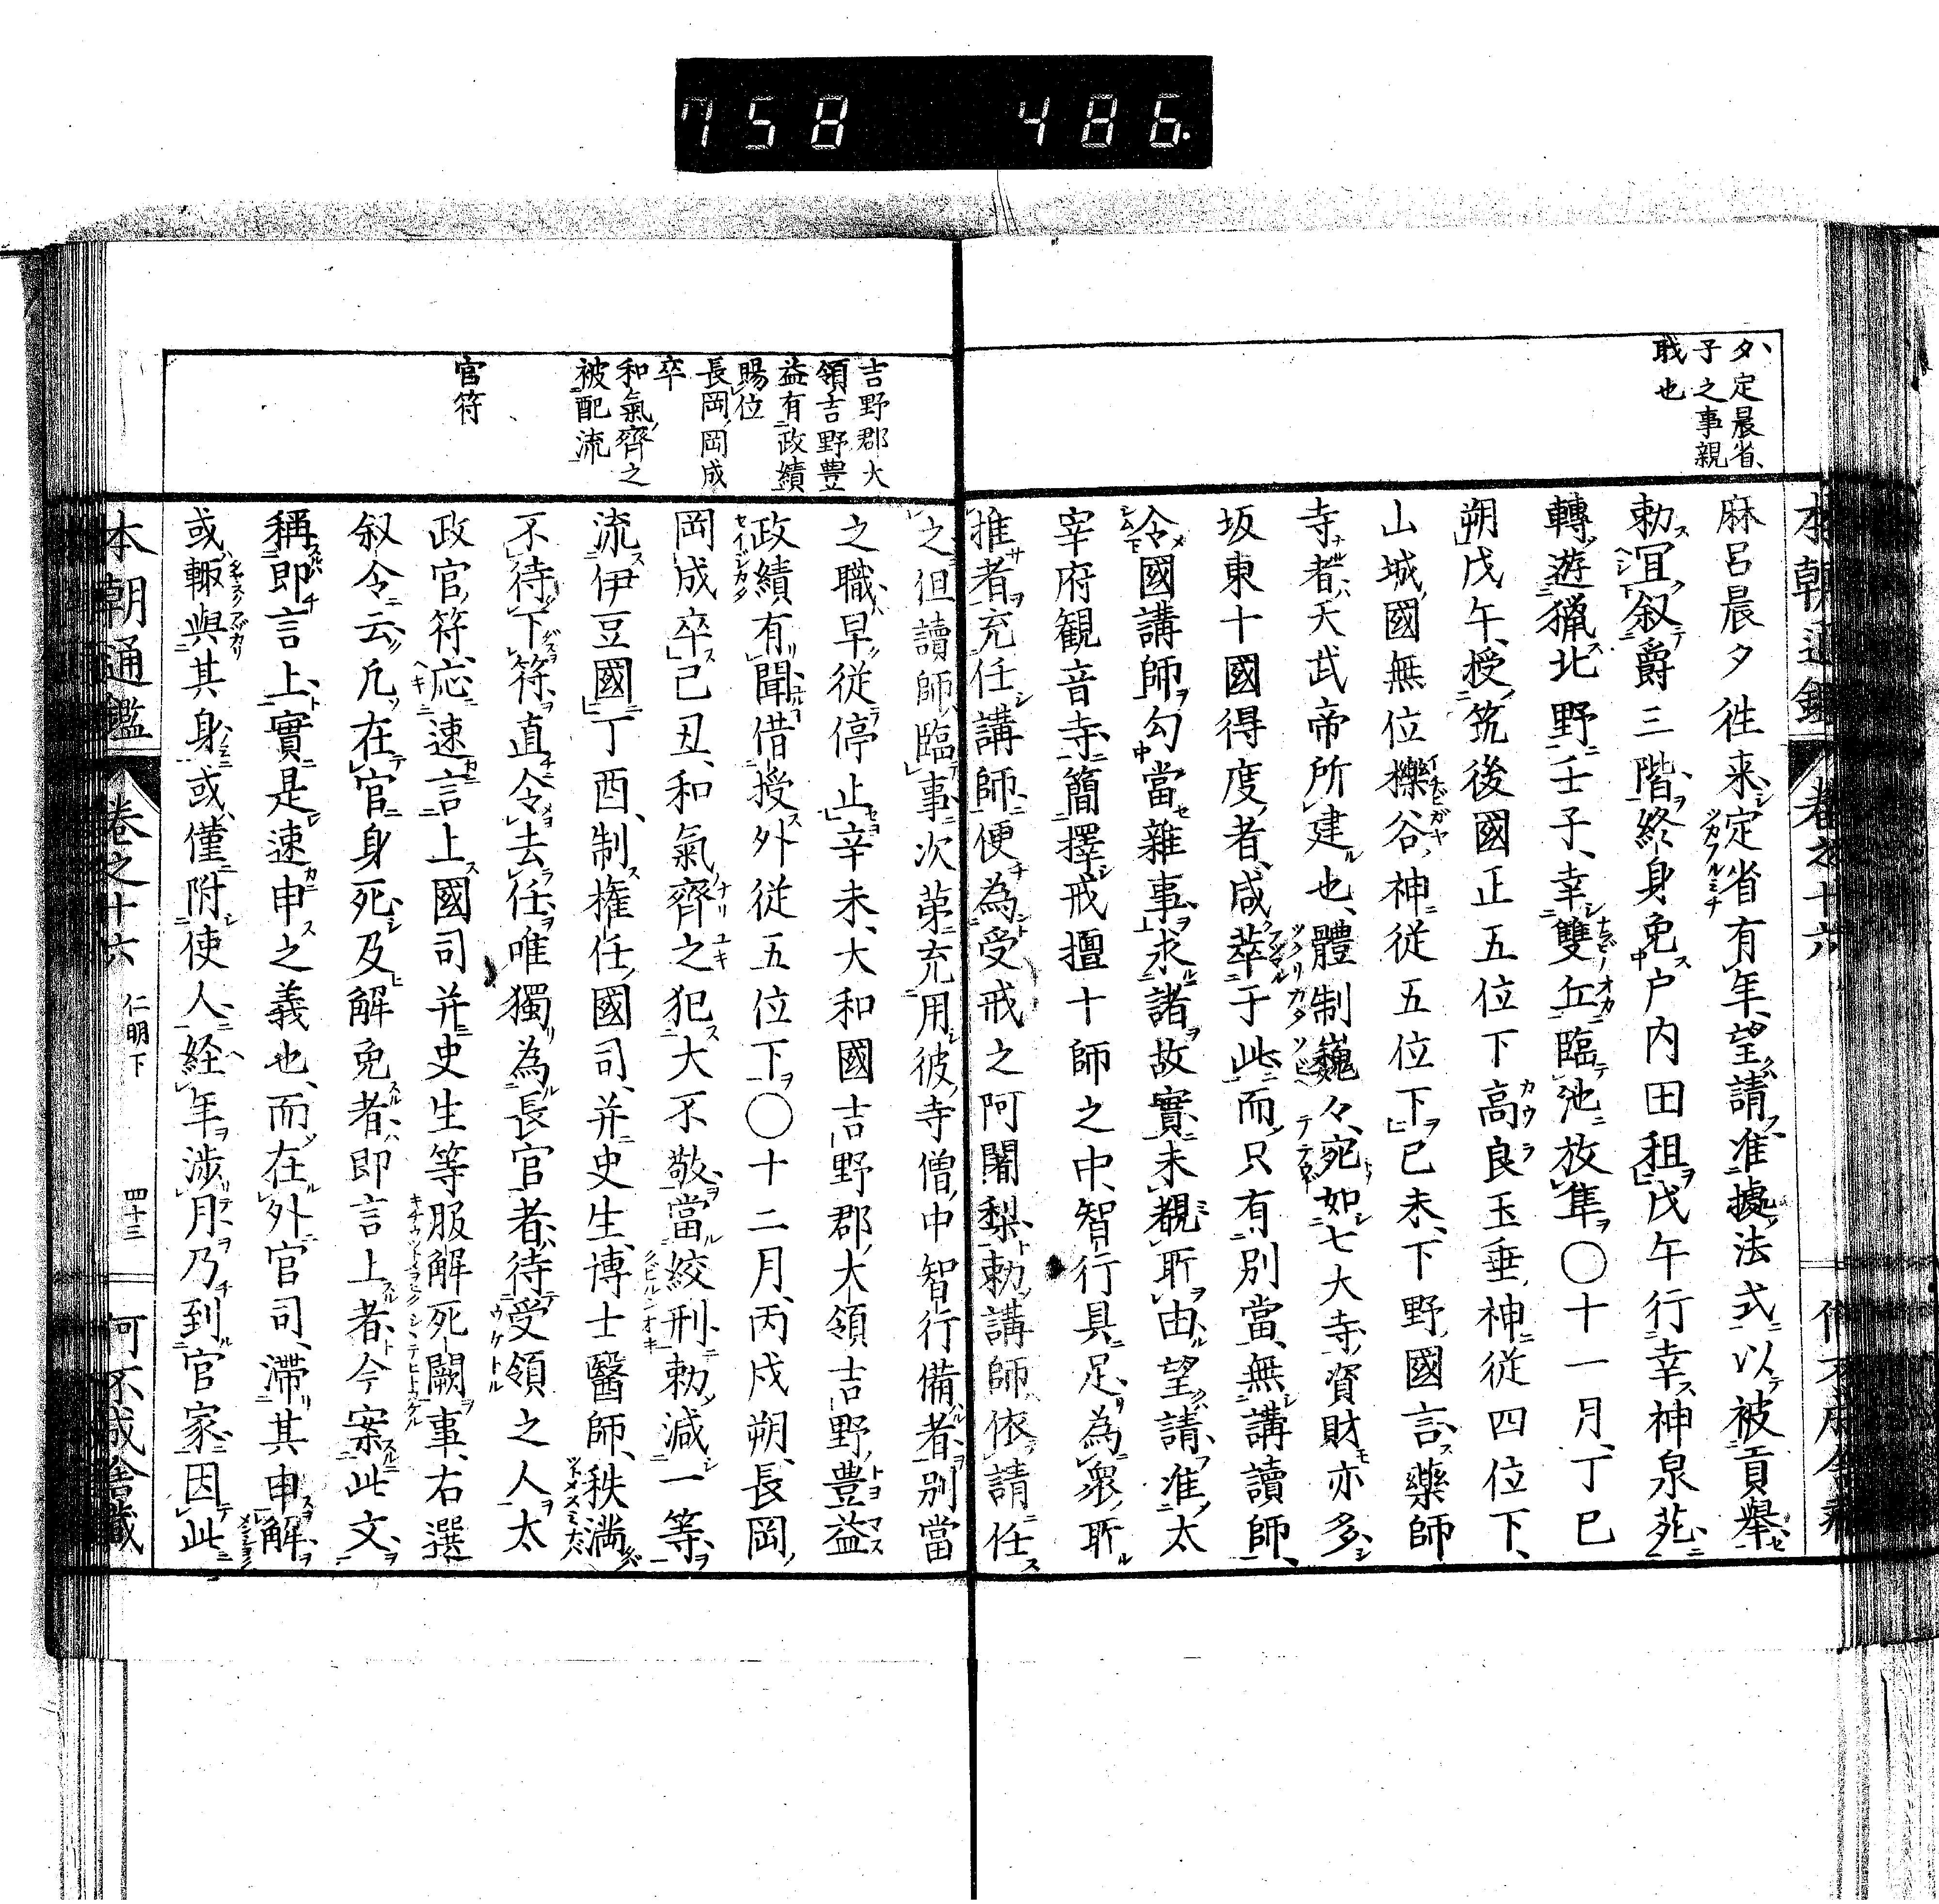 758 486.
夕、定晨省、
子之事親
戢也
麻呂晨夕徃来定省有年、望請准據法式以被貢舉
勅、宜叙爵三階、終身免戸内田租戊午行幸神泉苑
轉遊猟北野壬子、幸雙丘臨池放隼〇十一月、丁巳
朔戊午、授筑後國正五位下高良玉垂神從四位下、
山城國無位櫟谷神從五位下已未、下野國言、藥師
寺者、天武帝所建也、體制巍々、宛如七大寺、資財亦多
坂東十國得度者、咸萃于此而只有別當、無講讀師、
令國講師勾當雜事求諸故實、未覩所由、望請准太
宰府観音寺、簡擇戒壇十師之中、智行具足、為衆所
推者、充任講師便為受戒之阿闍梨、勅講師依請任
之但讀師臨事次第充用彼寺僧中智行備者、別當
之職早從停止辛未、大和國吉野郡大領吉野豊益
政績有聞借授外從五位下〇十二月、丙戌朔、長岡
岡成卒己丑、和氣齊之犯大不敬當絞刑勅減一等、
流伊豆國丁酉、制権任國司、并史生、博士醫師、秩満
不待下符、直令去任唯獨為長官者、待受領之人太
政官符、応速言上國司并史生等服解死闕事、右選
叙令云、凡在官身死及解免者、即言上者、今案此文
稱即言上實是速申之義也、而在外官司、滯其申解
或輙與其身或僅附使人経年渉月乃到官家、因此
吉野郡大
領吉野豊
益有政績
賜位
長岡岡成
卒
和氣齊之
被配流
官符
本朝通鑑
卷之十六
仁明下
四十三
何不成舎蔵